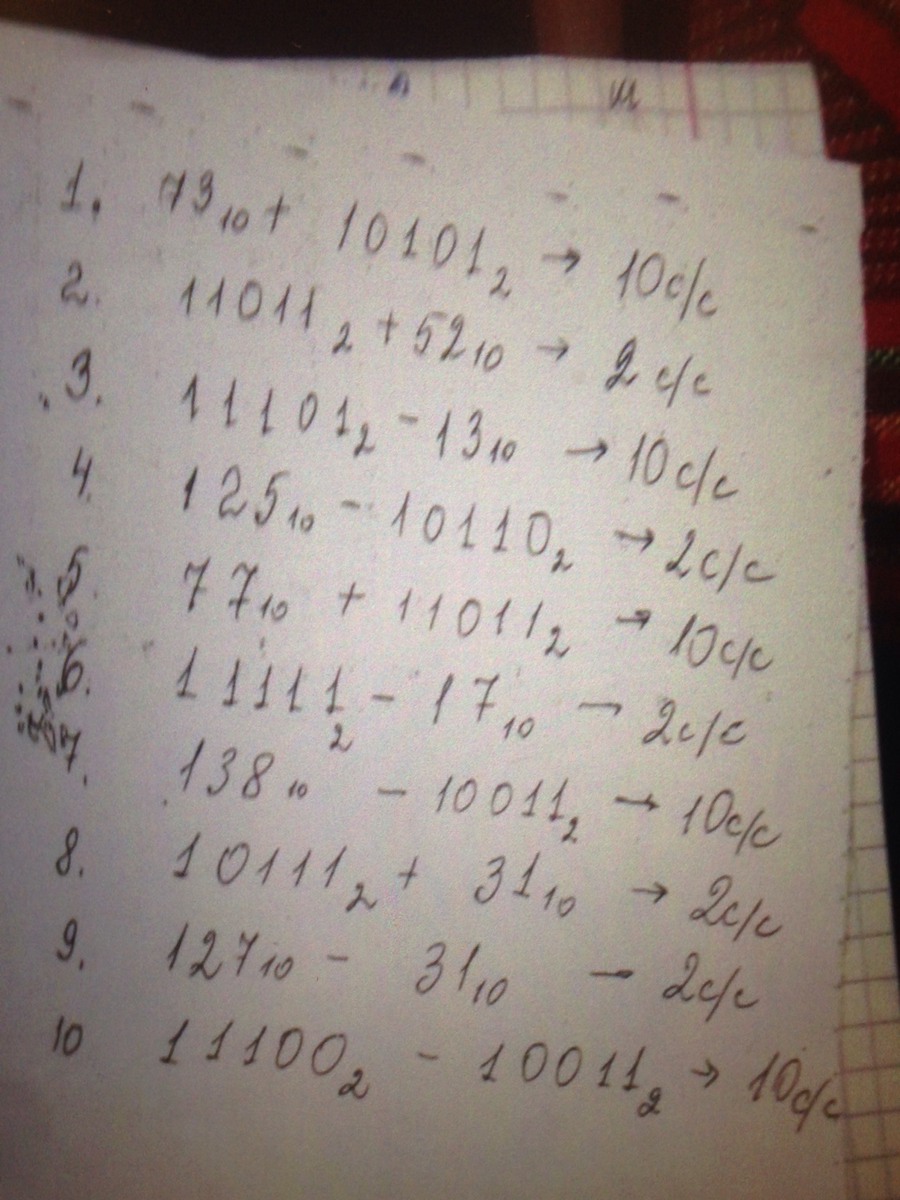 1. 73₁₀ + 10101₂ → 10 с/с
2. 11011₂ + 52₁₀ → 2 с/с
3. 11101₂ - 13₁₀ → 10 с/с
4. 125₁₀ - 10110₂ → 2 с/с
5. 77₁₀ + 11011₂ → 10 с/с
6. 11111₂ - 17₁₀ — 2 с/с
7. 138₁₀ - 10011₂ → 10 с/с
8. 10111₂ + 31₁₀ → 2 с/с
9. 127₁₀ - 31₁₀ — 2 с/с
10 11100₂ - 10011₂ → 10 с/с